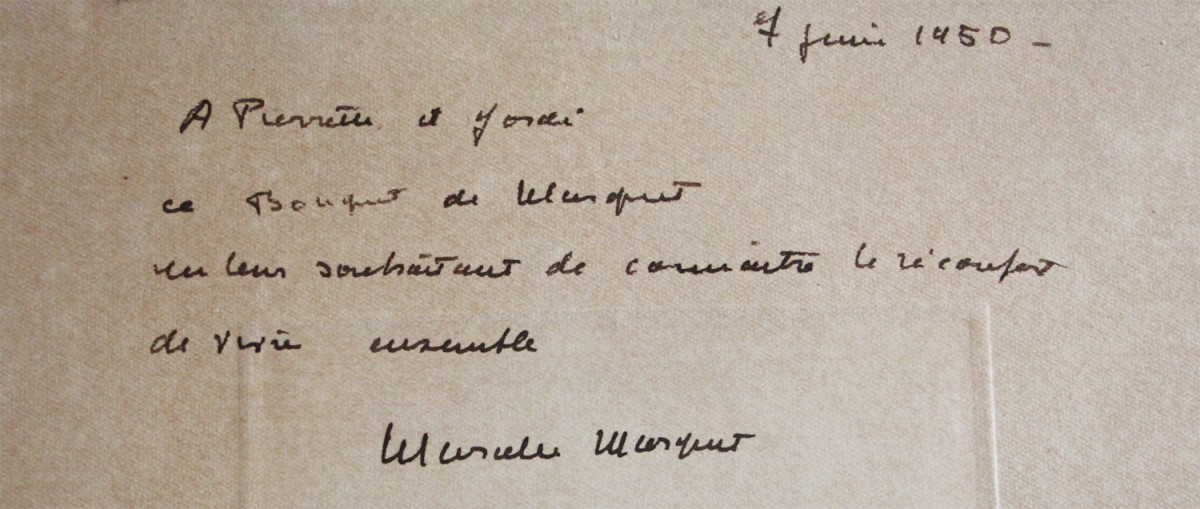 7 juin 1950 -
A Pierrette et Jordi
ce Bouquet de Marquet
en leur souhaitant de connaître le réconfort
de vivre ensemble
Marcelle Marquet